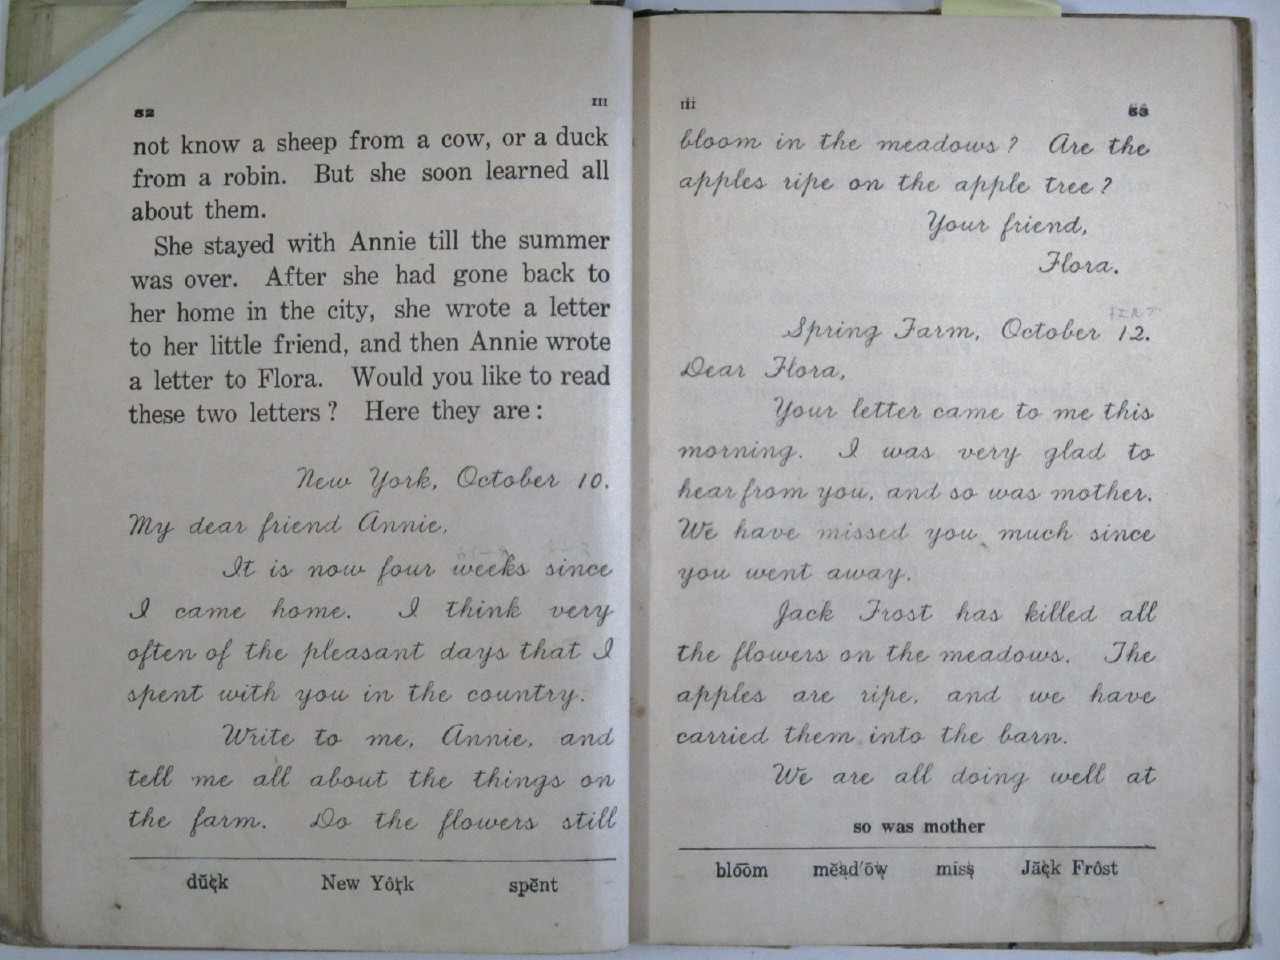 52
III
not know a sheep from a cow, or a duck
from a robin. But she soon learned all
about them.
She stayed with Annie till the summer
was over. After she had gone back to
her home in the city, she wrote a letter
to her little friend, and then Annie wrote
a letter to Flora. Would you like to read
these two letters? Here they are:
New York, October 10.
My dear friend Annie,
It is now four weeks since
I came home. I think very
often of the pleasant days that I
spent with you in the country.
Write to me, Annie, and
tell me all about the things on
the farm. Do the flowers still
dŭck New Yôrk spĕnt
III
53
bloom in the meadows? Are the
apples ripe on the apple tree?
Your friend,
Flora.
Spring Farm, October 12.
Dear Flora,
Your letter came to me this
morning. I was very glad to
hear from you, and so was mother.
We have missed you much since
you went away.
Jack Frost has killed all
the flowers on the meadows. The
apples are ripe, and we have
carried them into the barn.
We are all doing well at
so was mother
blo͞om mĕad'ōw mĭss Jăck Frôst